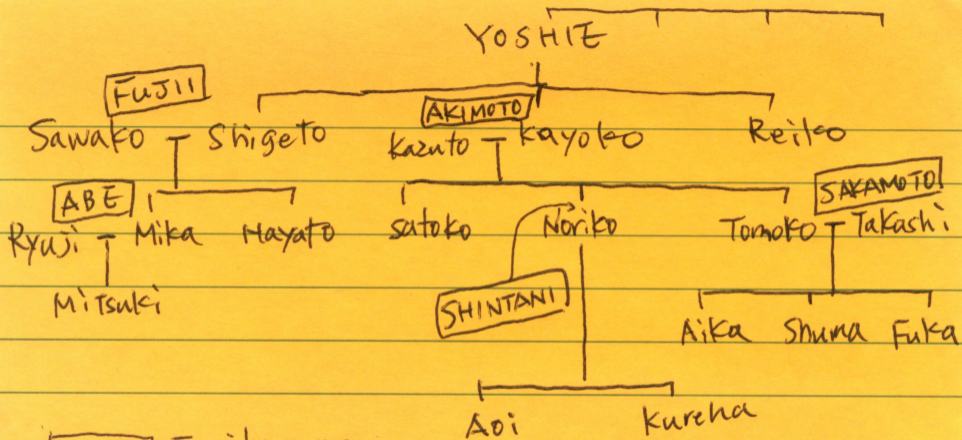 YOSHIE
FUJII
AKIMOTO
Sawako Shigeto Kazuto Kayoko Reiko
ABE SAKAMOTO
Ryuji Mika Hayato Satoko Noriko Tomoko Takashi
Mitsuki SHINTANI
Aika Shuma Fuka
Aoi Kureha